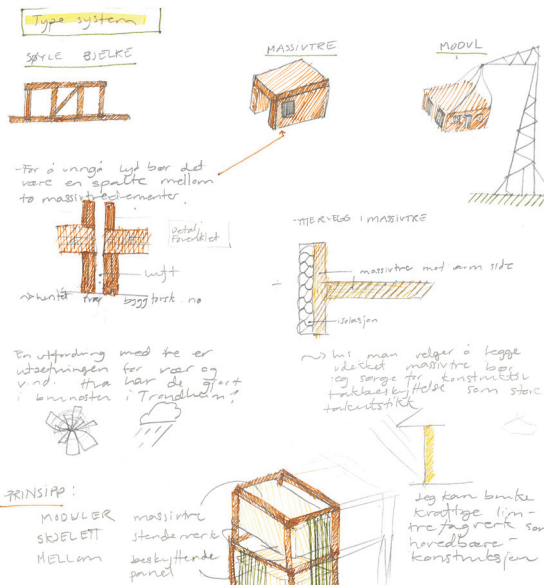 Type system
SØYLE BJELKE
MASSIVTRE
MODUL
-For å unngå lyd bør det
være en spalte mellom
to massivtreelementer.
Detalj
Forenklet
luft
~> hentet fra byggforsk.no
-YTTERVEGG I MASSIVTRE
massivtre mot varm side
isolasjon
En utfordring med tre er
utsetningen for vær og
vind. Hva har de gjort
i brannosten i Trondheim?
~> hvis man velger å legge
utekket massivtre bør
jeg sørge for konstruktiv
takbeskyttelse som store
takutstikk
PRINSIPP:
MODULER massivtre
SKJELETT stenderverk
MELLOM beskyttende
panel
Jeg kan bruke
kraftige lim-
tre fagverk som
hovedbære-
konstruksjon